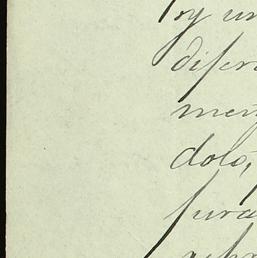 oy un
difer
men
dolo,
fura